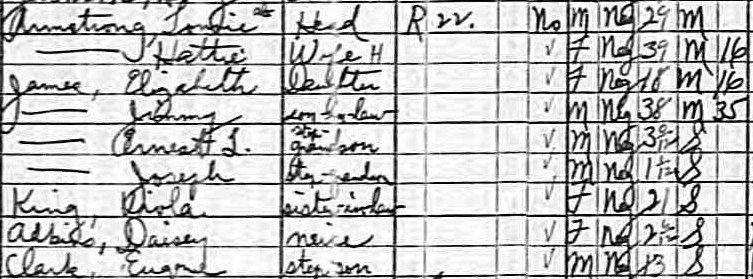 Armstrong, Lonnie Head R 22. No M Neg 29 M
—— Hattie Wife H √ F Neg 39 M 16
James, Elizabeth Daughter √ F Neg 18 M 16
—— Jimmy son-in-law √ M Neg 38 M 35
—— Ernest L. step-grandson √ M Neg 3 S
—— Joseph step-grandson √ M Neg 1 S
King, Viola sister-in-law √ F Neg 21 S
Adkins, Daisey neice √ F Neg 2 S
Clark, Eugene step-son √ M Neg 13 S